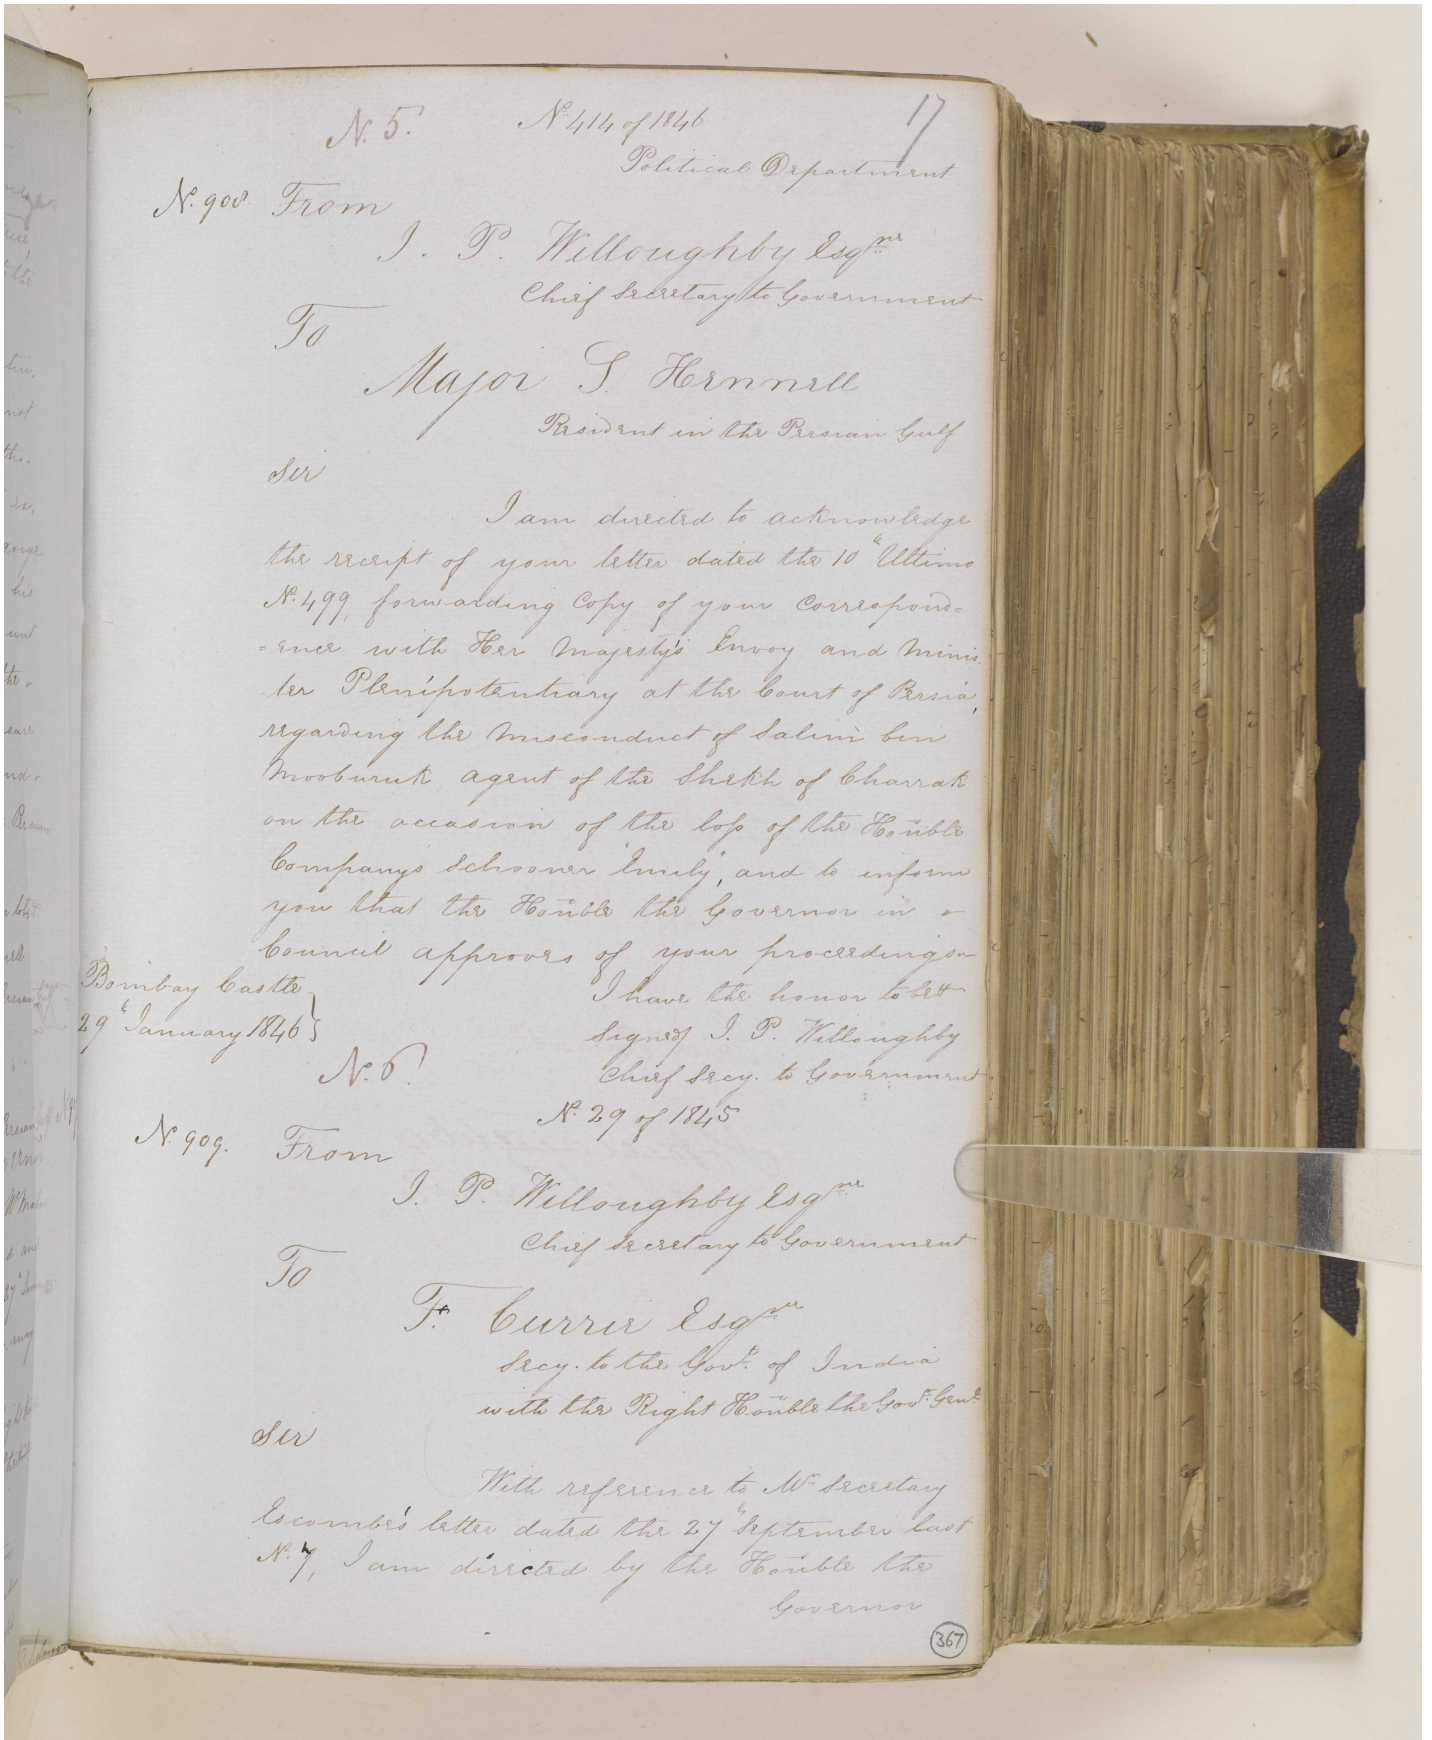 17
N. 5.
No. 414 of 1846
Political Department
No. 908. From
J. P. Willoughby Esqre
Chief Secretary to Government
To
Major S. Hennell
Resident in the Persian Gulf
Sir
I am directed to acknowledge
the receipt of your letter dated the 10" Ultimo
No. 499, forwarding Copy of your Correspond=
=ence with Her Majesty's Envoy and Minis
ter Plenipotentiary at the Court of Persia,
regarding the Misconduct of Salim bin
Mooburuk, agent of the Shekh of Charrak
on the occasion of the loss of the Honble
Company's Schooner "Emily", and to inform
you that the Honble the Governor in
Council approves of your proceedings
Bombay Castle
29" January 1846
I have the honor to be &c
Signed J. P. Willoughby
Chief Secy. to Government
N. 6.
No. 29 of 1845
No. 909. From
J. P. Willoughby Esqre
Chief Secretary to Government
To
F. Currie Esqre
Secy. to the Govt. of India
with the Right Honble the Govr. Genl.
Sir
With reference to Mr Secretary
Escombe's letter dated the 27" September last
No. 7, I am directed by the Honble the
Governor
367